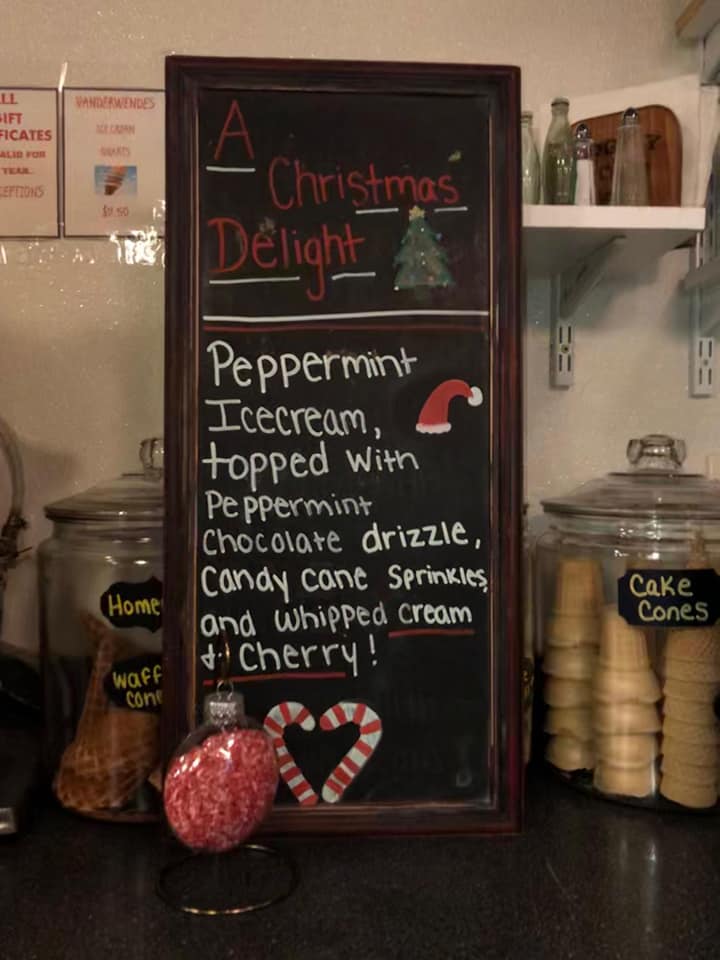 A
Christmas
Delight
Peppermint
Icecream,
topped with
Peppermint
Chocolate drizzle,
Candy cane Sprinkles,
and whipped cream
+ Cherry!
LL
IFT
IFICATES
ALID FOR
YEAR.
EPTIONS
VANDERWENDES
ICE CREAM
QUARTS
Home
Waff
Cone
Cake
Cones